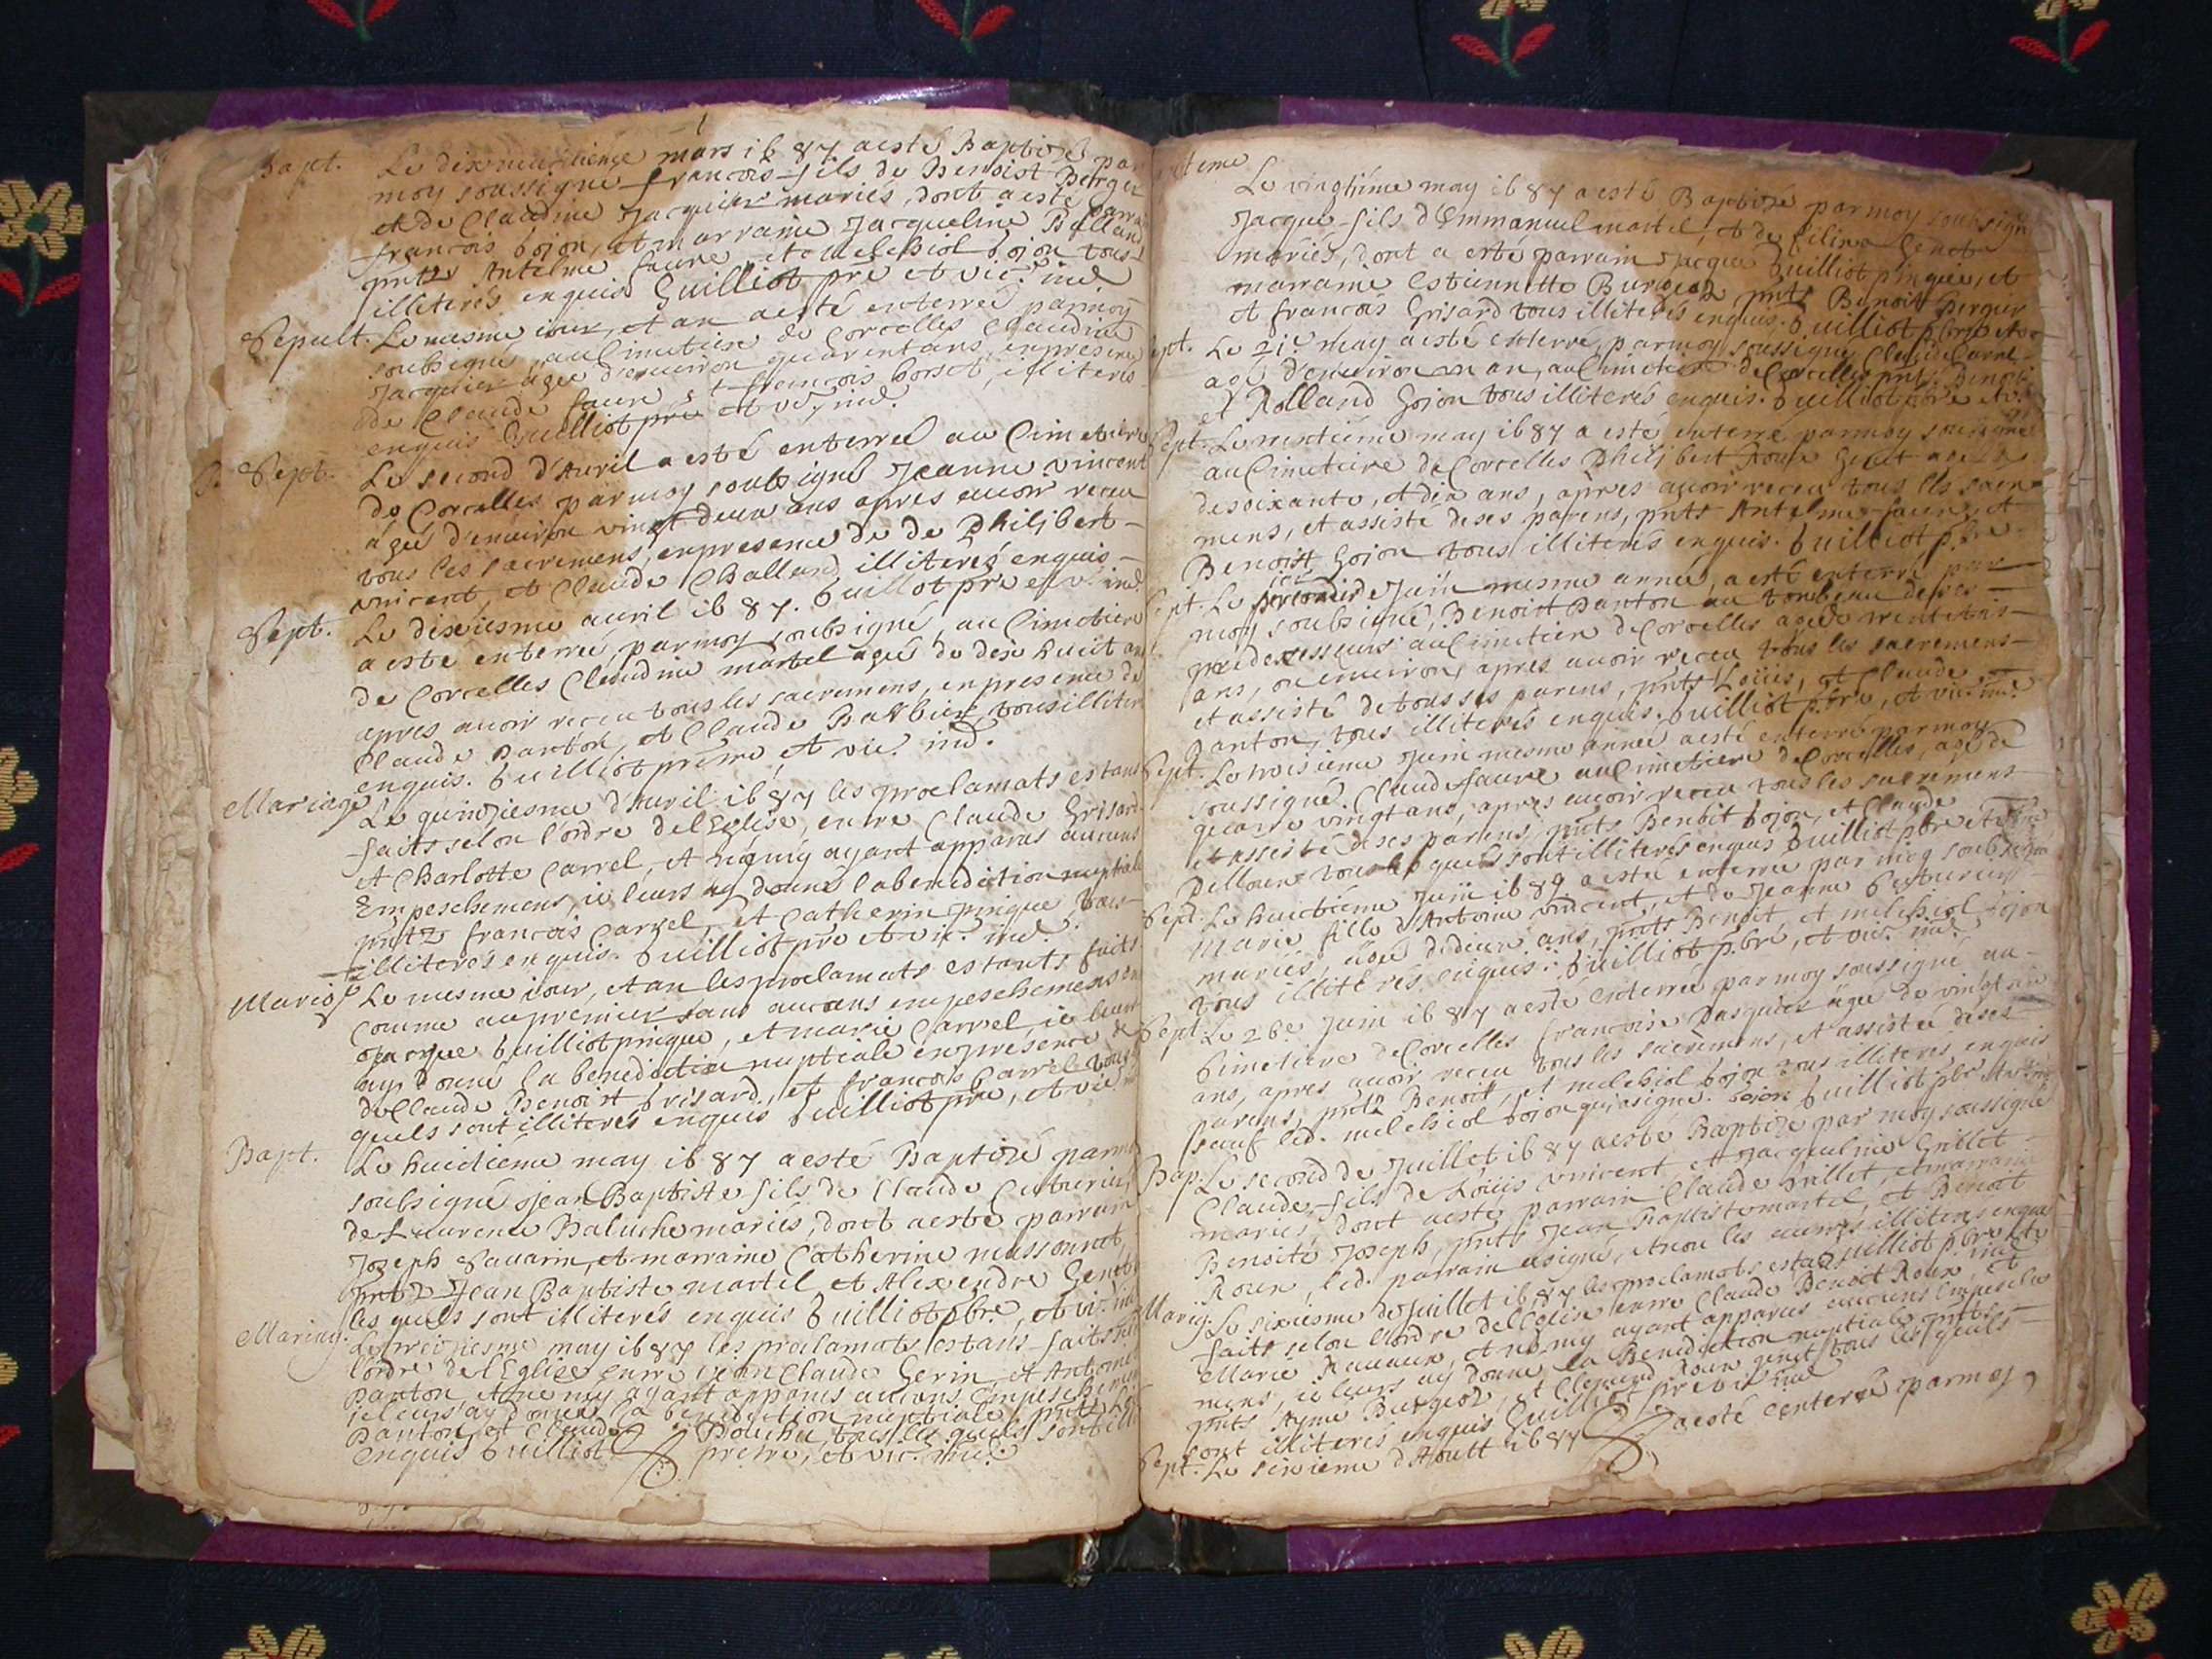 Bapt. Le dixneufvienme mars 1687 a esté Baptizé par
moy soussigné francois fils de Benoist Berger
et de Claudine Jacquier mariés, dont a esté parrain
francois Gojon, et marraine Jacqueline Balland
pntz Antelme faure, et melchiol Gojon tous
illiterés enquis Guilliot pre et vic. ind.
Sepult. Le mesme iour, et an a esté enterrée par moy
soubsigné, au Cimetiere de Corcelles Claudine
Jacquier agée d'environ quarent ans, en presence
de Claude faure, et francois borset, illiterés
enquis Guilliot pre et vic. ind.
Sept. Le second d'Auril a esté enterreé au Cimetiere
de Corcelles par moy soubsigné Jeanne vincent
ágée d'enuiron vingt deux ans apres auoir receu
tous les sacremens, en presence de de Philibert
vincent, et Claude Challand illiterés enquis
Guilliot pre et v. ind.
Sept. Le dixiesme auril 1687.
a esté enterreé, par moy soubsigné, au Cimetiere
de Corcelles Claudine martel agée de dix huict ans
apres auoir receu tous les sacremens, en presence de
Claude Danton, et Claude Barbier, tous illiter
enquis. Guilliot et vic. ind.
Mariage Le quinziesme d'Auril 1687 les proclamats estans
faits selon l'ordre de l'Eglise, entre Claude Grisard
et Charlotte Carrel, et n'y ayant apparus aucuns
Empeschemens, ie leurs ay donné la benediction nuptiale
pntz francois Carrel, et Catherin pingue tous
illiterés enquis. Guilliot pre et vic. ind.
Mariage Le mesme iour, et an les proclamats estants faits
comme au premier sans aucuns empeschemens en
Jacque Guilliot pingue, et marie Carrel, ie leurs
ay donné la benediction nuptiale en presence de
de Claude Benoist Grisard, et francois Carrel
quels sont illiterés enquis Guilliot pre, et vic.
Bapt. Le huictiéme may 1687 a esté Baptizé par moy
soubsigné Jean Baptiste fils de Claude
de Laurence Baluche mariés, dont a esté parrain
Joseph Sauarin, et marraine Catherine massonnet,
pntz Jean Baptiste martel et Alexendre Genet
les quels sont illiterés enquis Guilliot pbre, et vic. ind
Mariag. Le may 1687 les proclamats estans faits
l'ordre de l'Eglise entre Jean Claude Gerin et Antoinet
Danton, et ne m'y ayant apparus aucuns Empeschemens
ie leurs ay donné la benediction nuptiale, pntz
Danton, et Claude Bouchu, tous les quels sont ill
enquis Guilliot pretre, et vic. ind.
Le vingtiéme may 1687 a esté Baptizé par moy soubsigné
Jacque fils d'Emmanuel martel, et de Genet
mariés, dont a esté parrain Jacque Guilliot pingue, et
marraine Estiennette Burgeoz, pnts Benoist Berger
et francois Grisard tous illiterés enquis. Guilliot
Le 21e may a esté enterré, par moy soussigné, Claude Carrel
agé d'enuiron un an, au Cimetiere de Corcelles pnts Benoit
et Rolland Gojon tous illiterés enquis. Guilliot pbre et
Sept. Le trentiéme may 1687 a esté enterré par moy soussigné
au Cimetiere de Corcelles Philibert Roux Genet agé
de soixante, et dix ans, apres auoir receu tous les sacre
mens, et assisté de ses parens, pnts Antelme faure, et
Benoist Gojon tous illiterés enquis. Guilliot pbre
Sept. Le Juin mesme année, a esté enterré par
moy soubsigné, Benoist Danton au tombeau de ses
predecesseurs au Cimetiere de Corcelles agé de
ans, ou enuiron, apres auoir receu tous les sacremens
et assisté de tous ses parens, pnts Loüis, et Claude
Danton, tous illiterés enquis. Guilliot pbre, et vic. ind.
Sept. Le troisieme Juin mesme année a esté enterré par moy
soussigné Claude faure au Cimetiere de Corcelles, agé de
quatre vingt ans, apres auoir receu tous les sacremens
et assisté de ses parens, pnts Benoit Gojon, et Claude
tous lesquels sont illiterés enquis Guilliot pbre et
Sept. Le huictiéme Juin 1687 a esté enterrée par moy soubsigné
Marie fille d'Antoine vincent, et de Jeanne
mariés, agée de deux ans, pnts Benoit, et melchiol Gojon
tous illiterés, enquis. Guilliot pbre, et vic. ind.
Sept. Le 26e Juin 1687 a esté enterrée par moy soussigné au
Cimetiere de Corcelles francoise Pasquier agée de vingt six
ans, apres auoir receu tous les sacremens, et assistée de ses
parens, pntz Benoit, et melchiol Gojon tous illiterés enquis
sauf led. melchiol Gojon qui a signé. Gojon Guilliot pbr
Bap. Le second de Juillet 1687 a esté Baptizé par moy soussigné
Claude fils de Loüis vincent et Jacqueline Grillet
mariés, dont a esté parrain Claude Grillet, et marraine
Benoite Joseph, pnts Jean Baptiste martel, et Benoit
Roux, led. parrain a signé, et non les autres illiterés enquis
Guilliot pbre et v. ind.
Mariag. Le sixiesme de Juillet 1687 les proclamats estans
faits selon l'ordre de l'Eglise entre Claude Benoit Roux, et
Marie Rauaux, et n'ayant apparus aucuns Empesche
mens, ie leurs ay donné la Benediction nuptiale pnts
Aymé Burgeoz, et Clepaud Roux genet tous les quels
sont illiterés enquis Guilliot pre et vic. ind
Sept. Le sixieme d'Aoust 1687 a esté enterré par moy